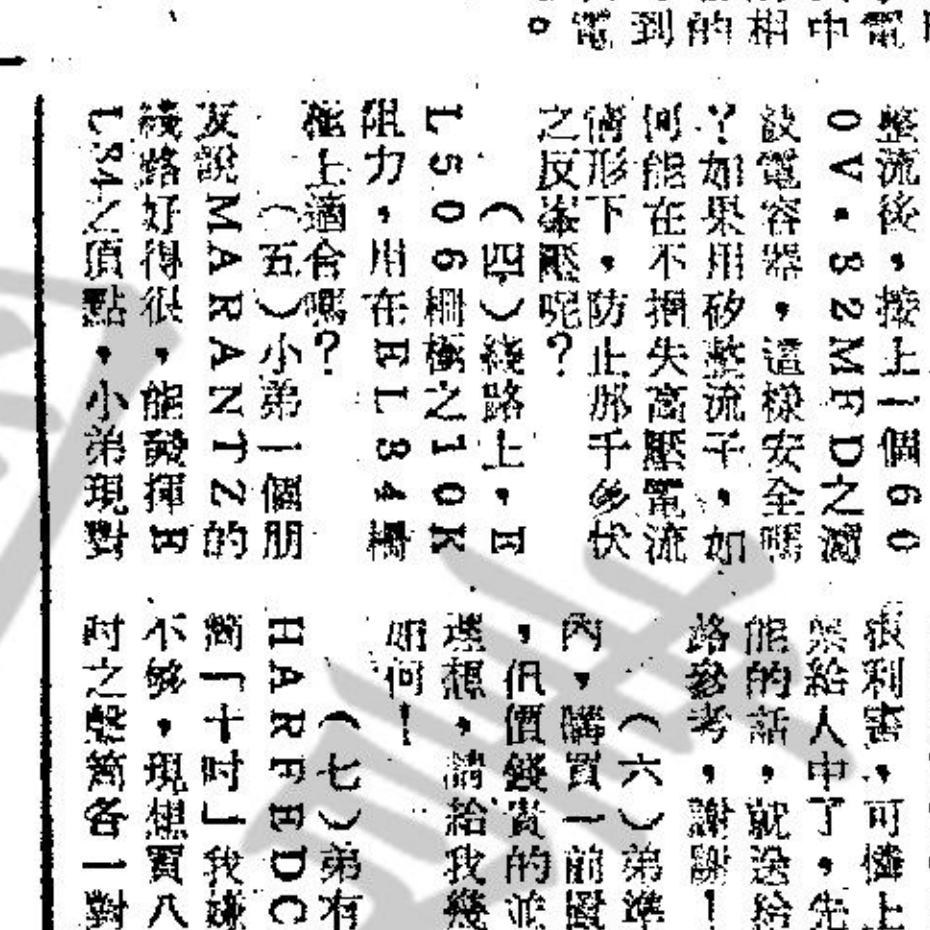 。電到的相中電
整流後，接上一個60
0V．82MFD之濾
波電容器，這樣安全嗎
？如果用矽整流子，如
何能在不損失高壓電流
情形下，防止那千多伏
之反峯壓呢？
（四）綫路上，E
L506柵極之10K
阻力，用在EL34柵
極上適合嗎？
（五）小弟一個朋
友說MARANTZ的
綫路好得很，能發揮E
L34之頂點，小弟現對
很利害，可憐上
給人中了，先
能的話，就送給
路參考，謝謝！
（六）弟準
內，購買一前
，但價錢貴的並
理想，請給我幾
如何！
（七）弟有
HARFEDC
筒「十吋」我嫌
不够，現想買八
吋之聲筒各一對